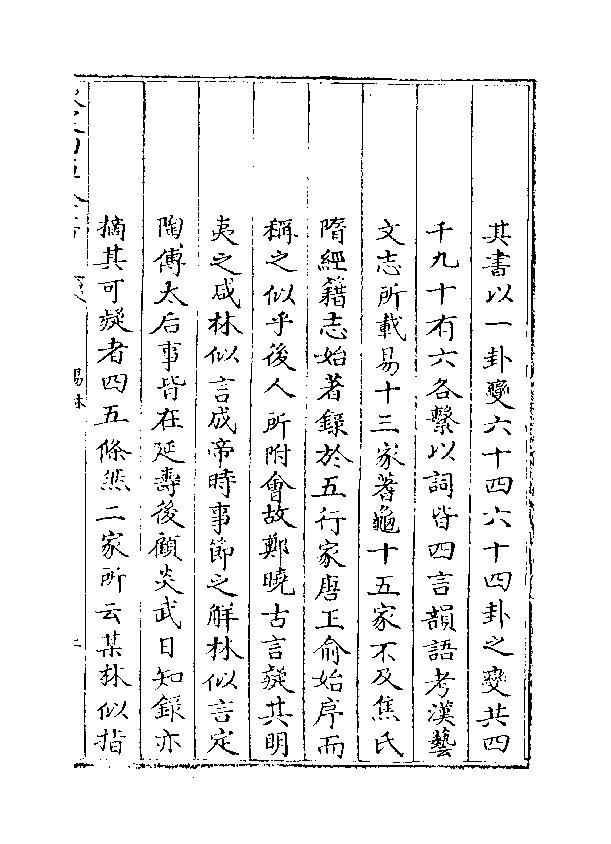 其書以一卦變六十四六十四卦之變共四
千九十有六各繫以詞皆四言韻語考漢藝
文志所載易十三家蓍龜十五家不及焦氏
隋經籍志始著錄於五行家唐王俞始序而
稱之似乎後人所附會故鄭曉古言疑其明
夷之咸林似言成帝時事節之解林似言定
陶傅太后事皆在延壽後顧炎武日知錄亦
摘其可疑者四五條然二家所云某林似指
易林